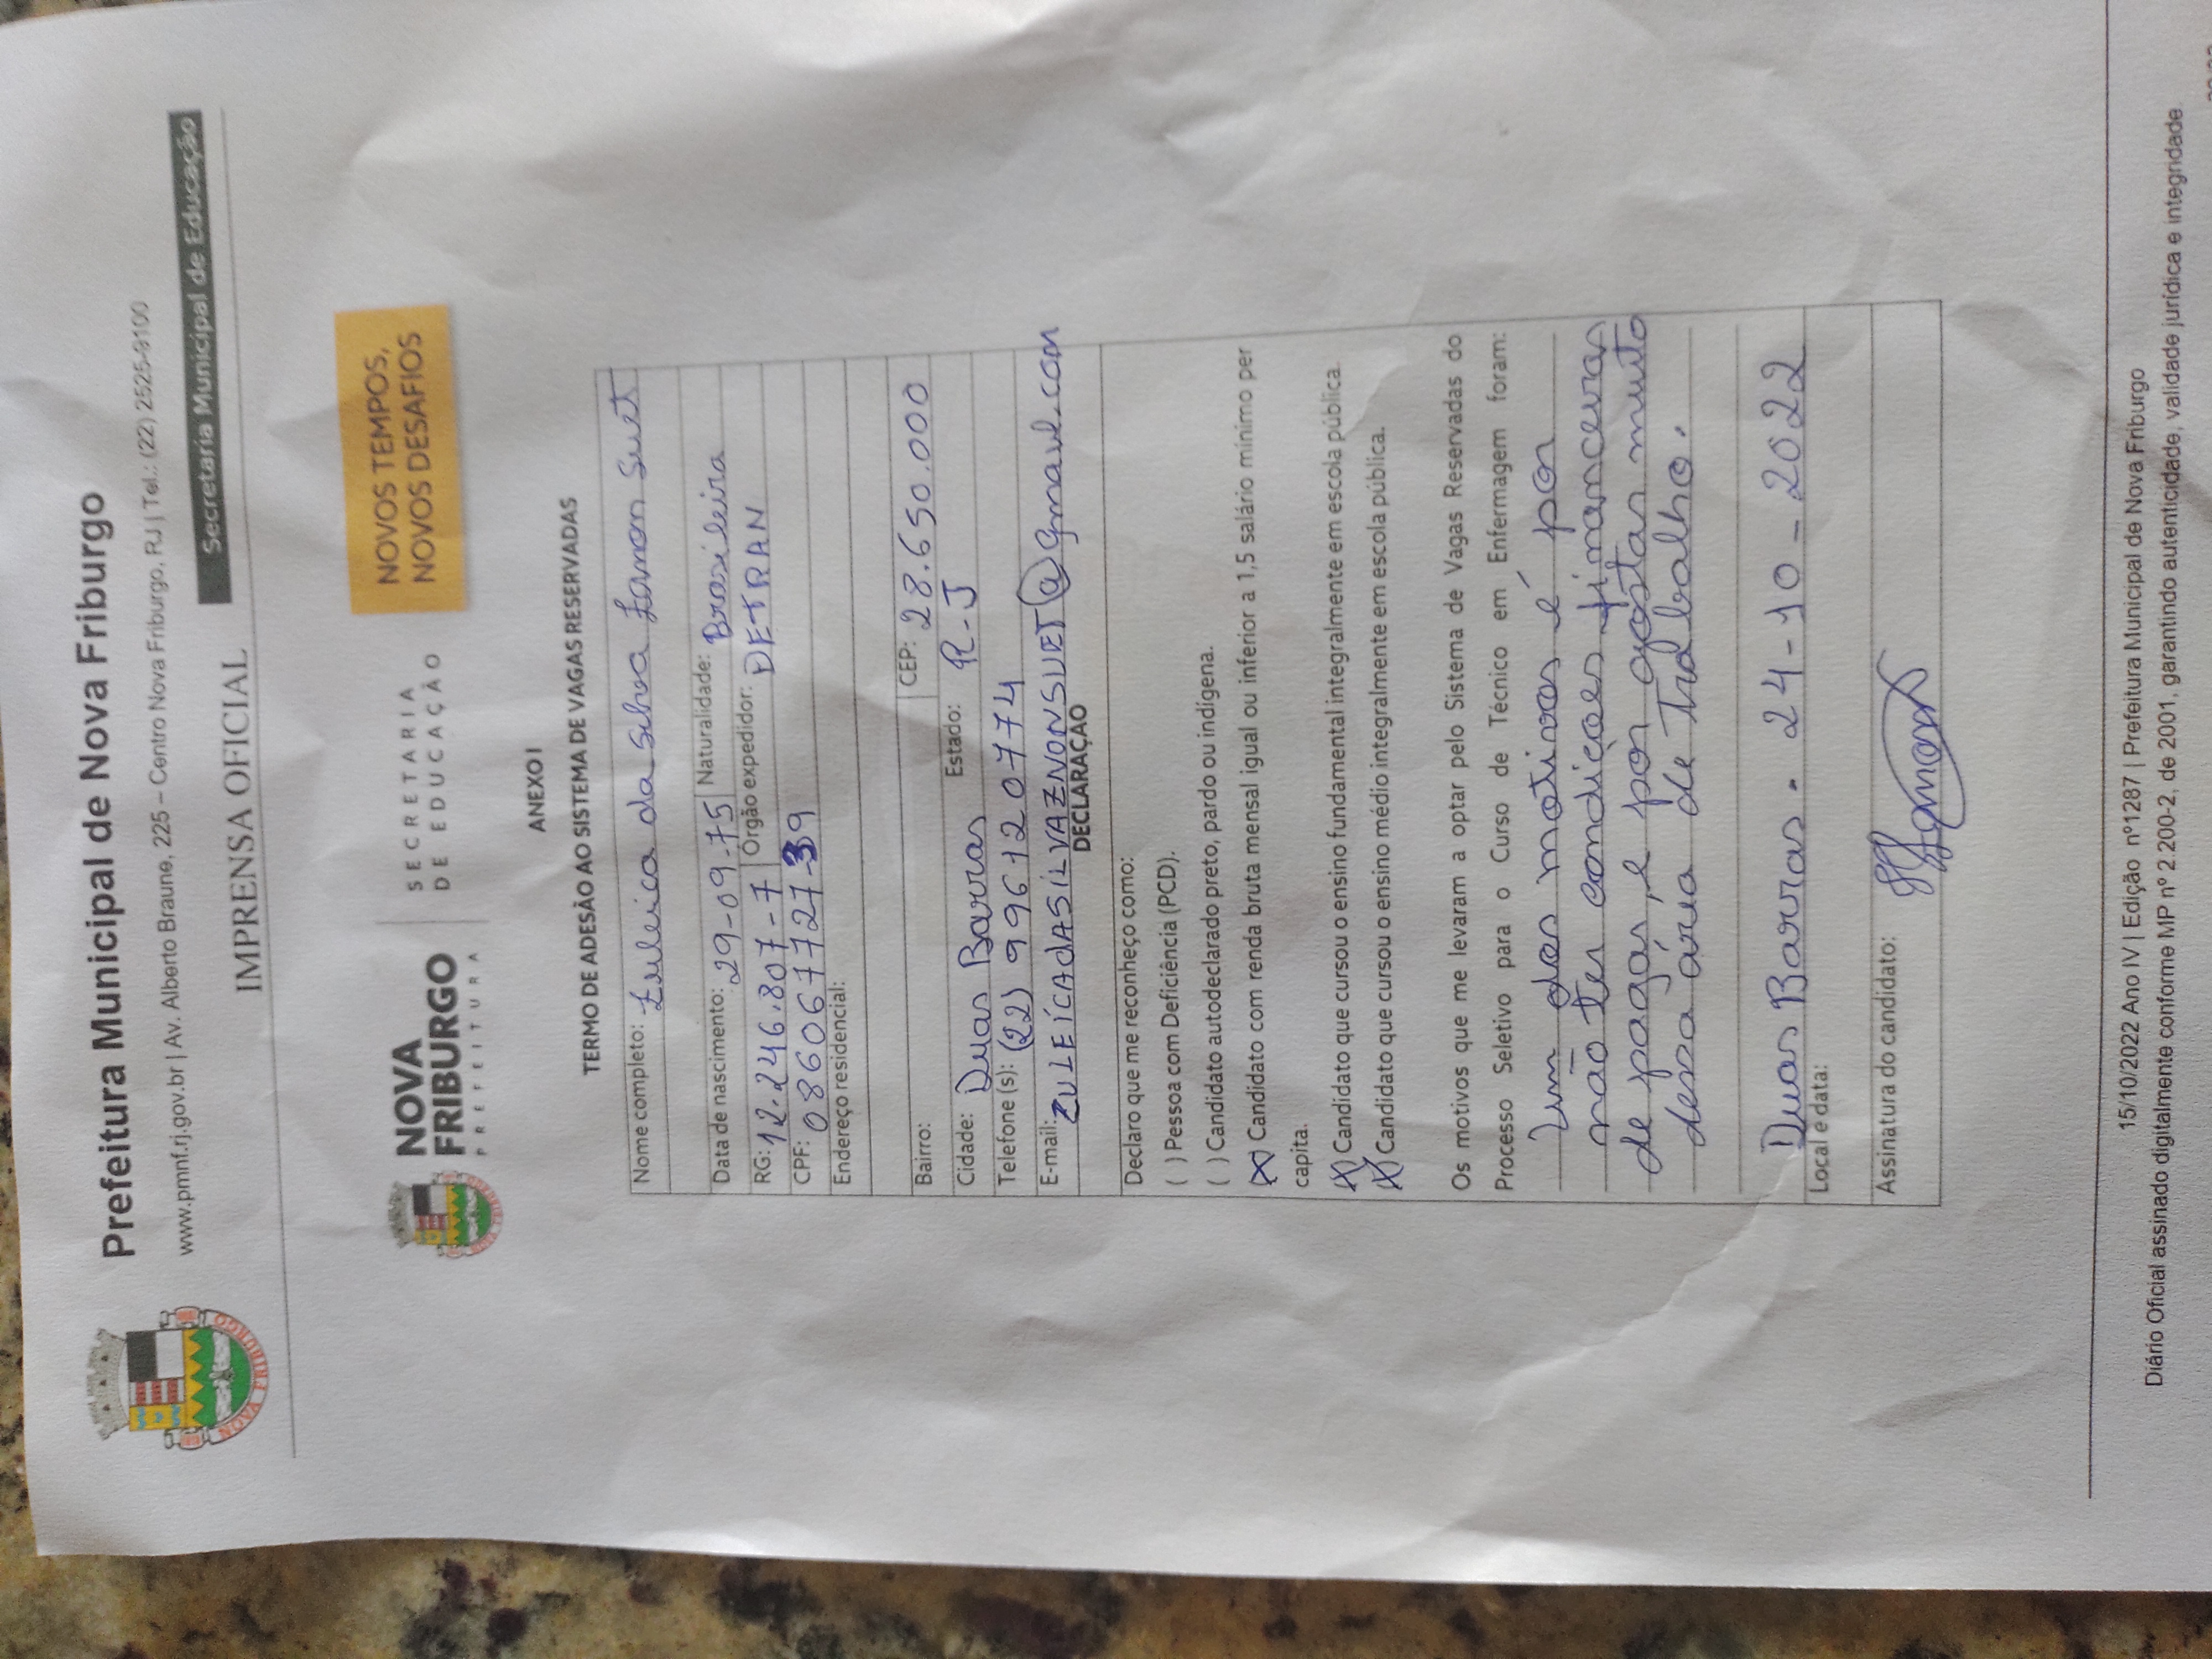 Prefeitura Municipal de Nova Friburgo
www.pmnf.rj.gov.br | Av. Alberto Braune, 225 – Centro Nova Friburgo, RJ | Tel.: (22) 2525-9100
Secretaria Municipal de Educação
IMPRENSA OFICIAL
NOVA FRIBURGO
NOVA FRIBURGO PREFEITURA
SECRETARIA DE EDUCAÇÃO
NOVOS TEMPOS,
NOVOS DESAFIOS
ANEXO I
TERMO DE ADESÃO AO SISTEMA DE VAGAS RESERVADAS
Nome completo: Zuleica da Silva Zanon Suet
Data de nascimento: 29-09-75 Naturalidade: Brasileira
RG: 12.246.807-7 Órgão expedidor: DETRAN
CPF: 086067727-39
Endereço residencial:
Bairro: CEP: 28.650.000
Cidade: Duas Barras Estado: R-J
Telefone (s): (22) 996120774
E-mail: ZULEÍCAdASILVAZNONSUET@gmail.com
DECLARAÇÃO
Declaro que me reconheço como:
( ) Pessoa com Deficiência (PCD).
( ) Candidato autodeclarado preto, pardo ou indígena.
(X) Candidato com renda bruta mensal igual ou inferior a 1,5 salário mínimo per
capita.
(X) Candidato que cursou o ensino fundamental integralmente em escola pública.
(X) Candidato que cursou o ensino médio integralmente em escola pública.
Os motivos que me levaram a optar pelo Sistema de Vagas Reservadas do
Processo Seletivo para o Curso de Técnico em Enfermagem foram:
Um dos motivos é por
não ter condições financeiras
de pagar, e por gostar muito
dessa área de trabalho.
Duas Barras. 24-10-2022
Local e data:
Assinatura do candidato: Zanon
15/10/2022 Ano IV | Edição nº1287 | Prefeitura Municipal de Nova Friburgo
Diário Oficial assinado digitalmente conforme MP nº 2.200-2, de 2001, garantindo autenticidade, validade jurídica e integridade.